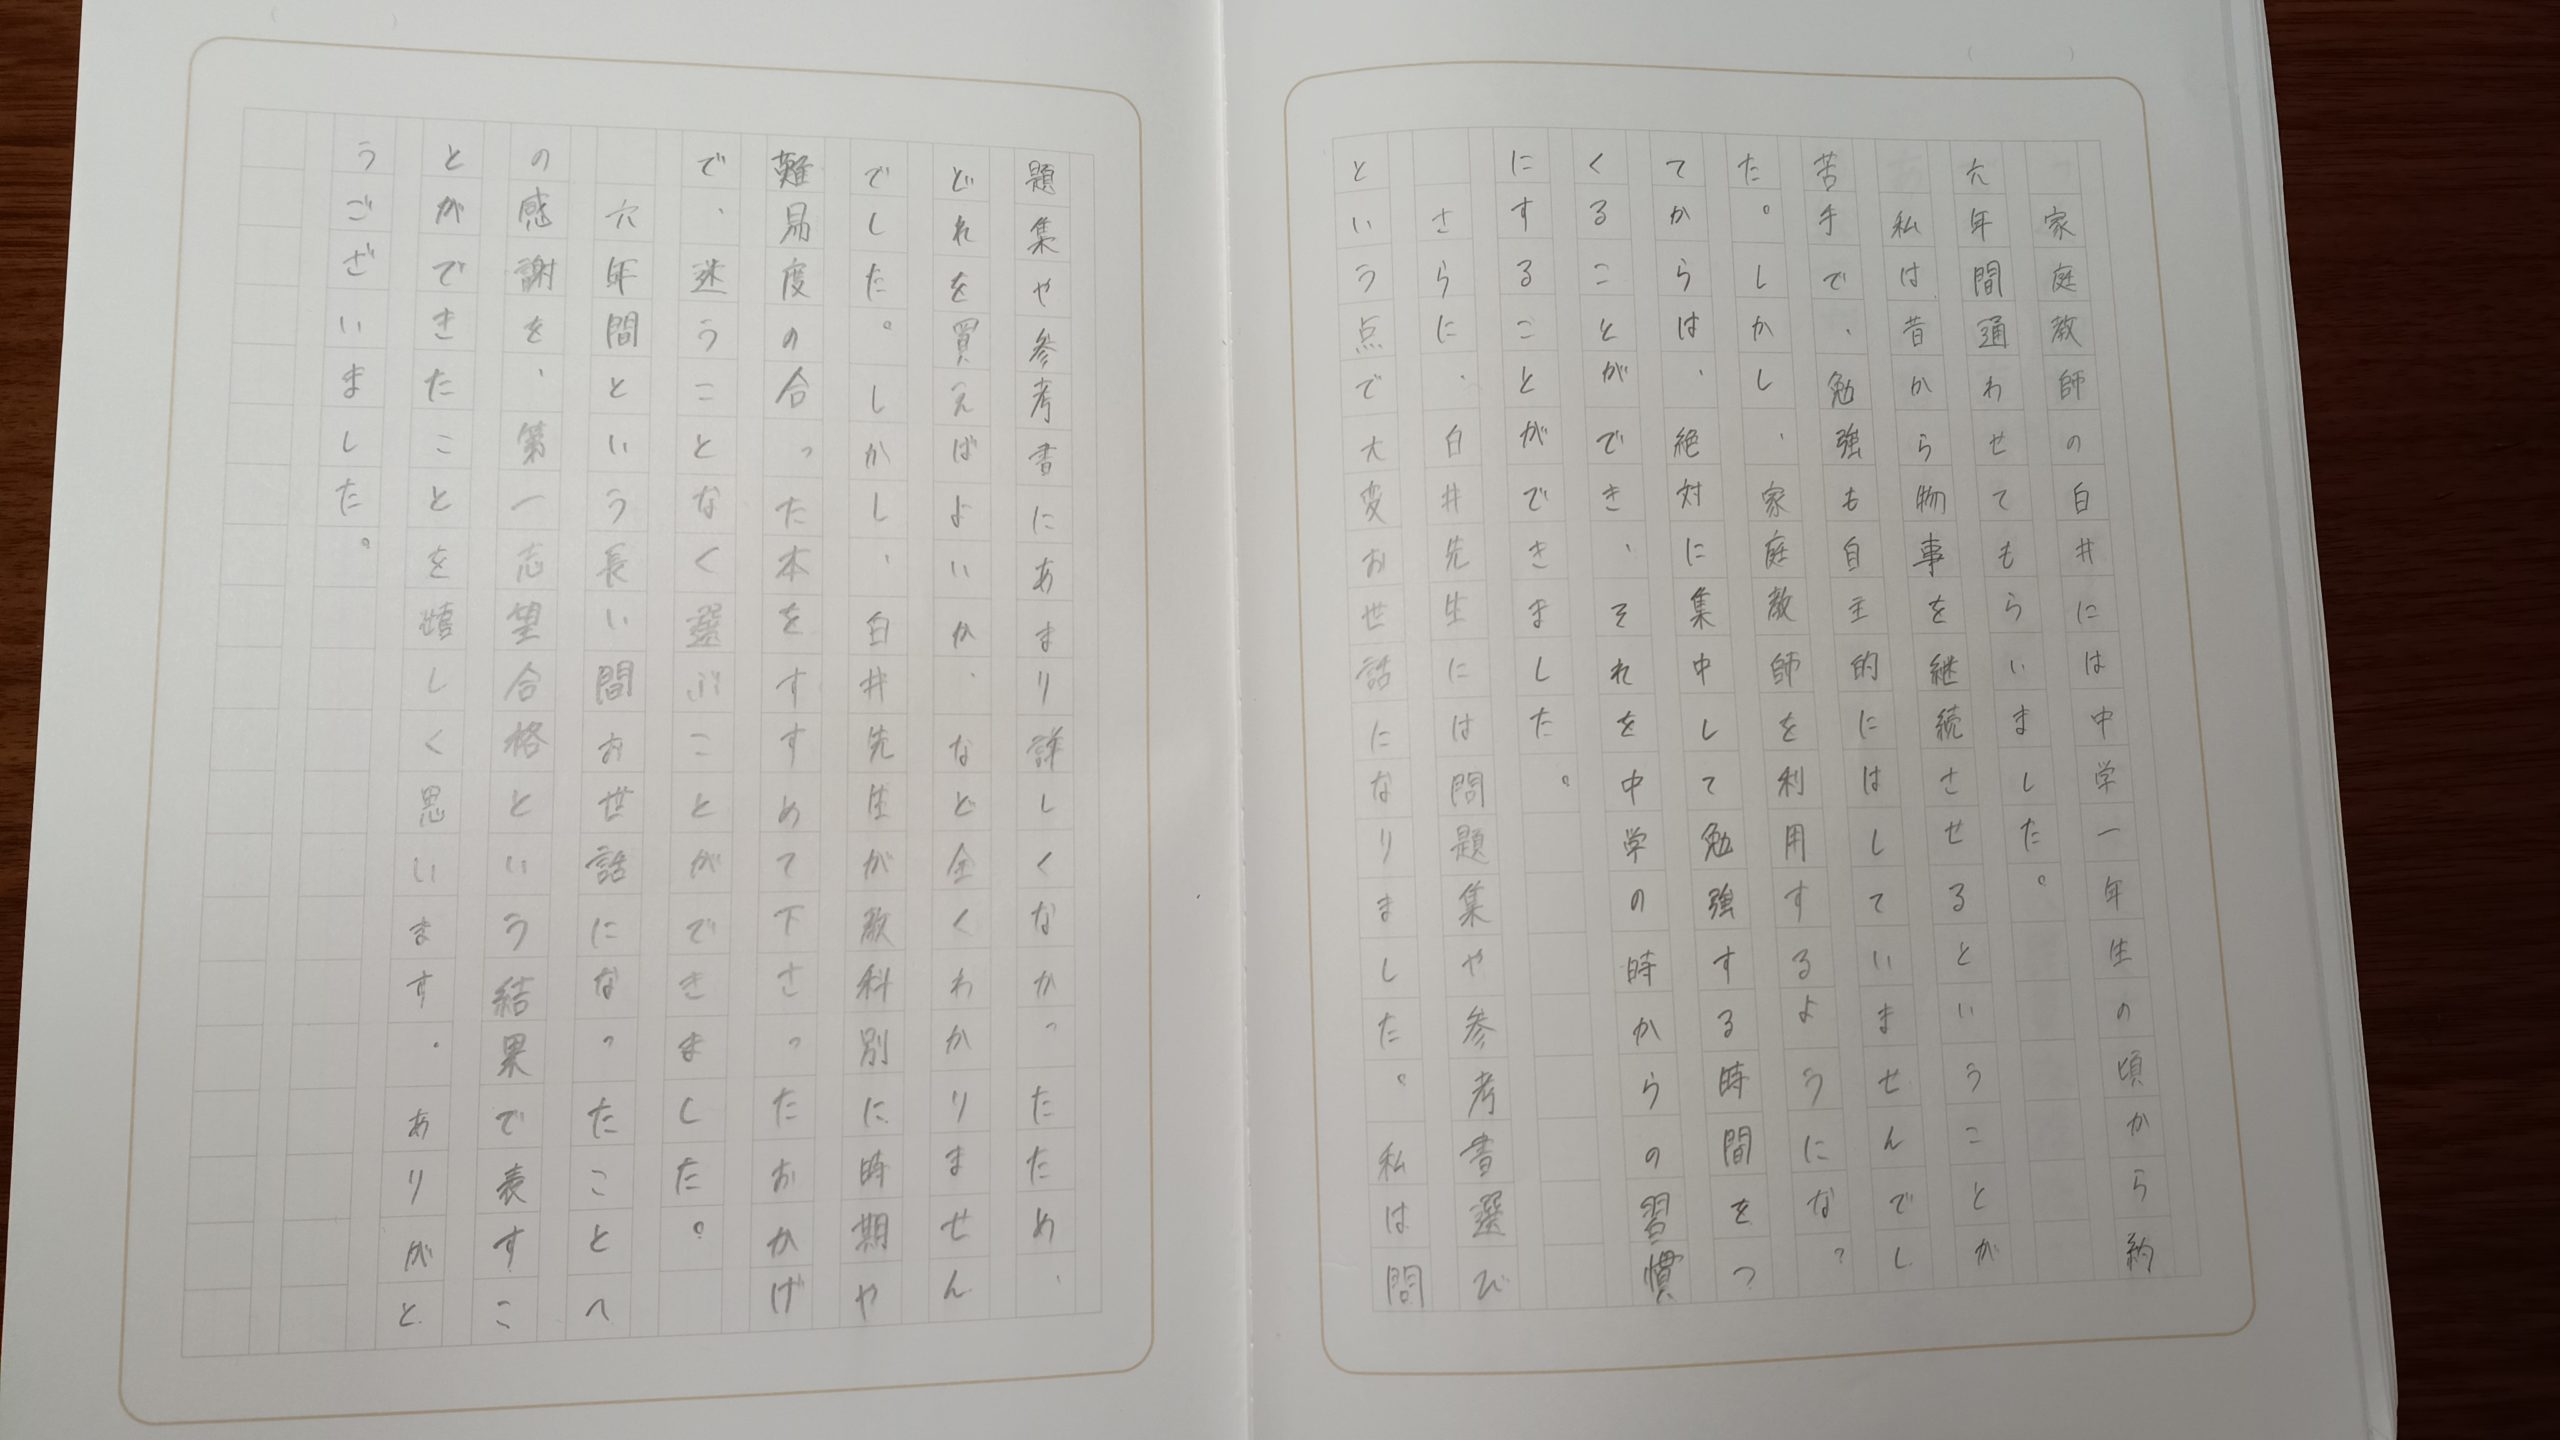 家庭教師の白井には中学一年生の頃から約
六年間通わせてもらいました。
私は昔から物事を継続させるということが
苦手で、勉強も自主的にはしていませんでし
た。しかし、家庭教師を利用するようになっ
てからは、絶対に集中して勉強する時間をつ
くることができ、それを中学の時からの習慣
にすることができました。
さらに、白井先生には問題集や参考書選び
という点で大変お世話になりました。私は問
題集や参考書にあまり詳しくなかったため、
どれを買えばよいか、など全くわかりません
でした。しかし、白井先生が教科別に時期や
難易度の合った本をすすめて下さったおかげ
で、迷うことなく選ぶことができました。
六年間という長い間お世話になったことへ
の感謝を、第一志望合格という結果で表すこ
とができたことを嬉しく思います。ありがと
うございました。